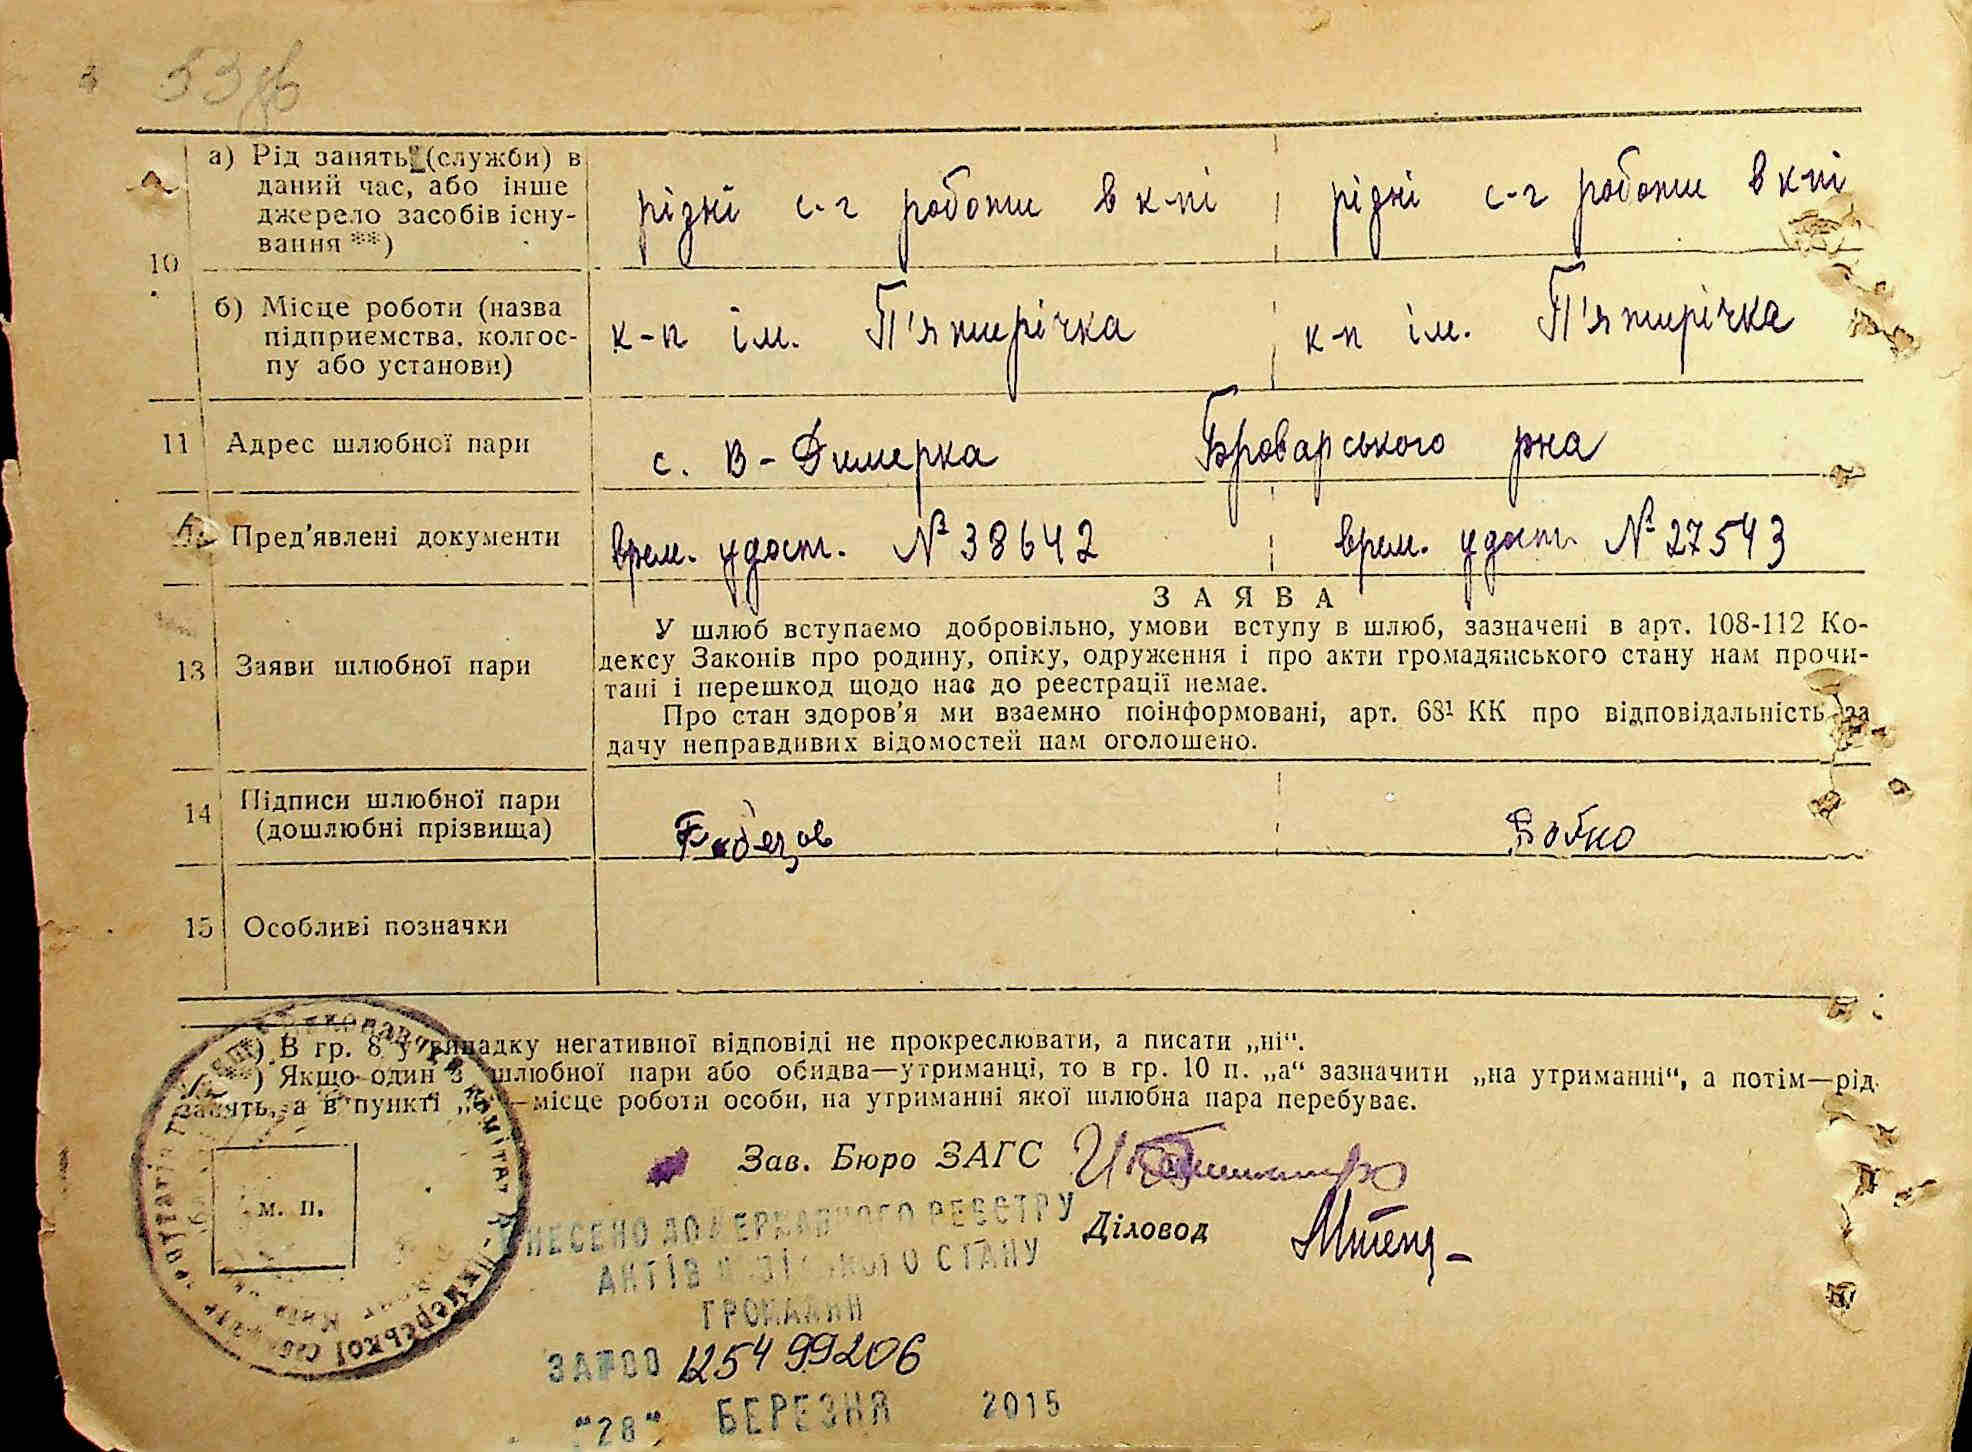 а) Рід занять (служби) в
даний час, або інше
джерело засобів існу-
вання **)
10
різні с-г роботи в к-пі
різні с-г роботи в к-пі
б) Місце роботи (назва
підприємства, колгос-
пу або установи)
к-п ім. П'ятирічка
к-п ім. П'ятирічка
11 Адрес шлюбної пари
с. В-Димерка Броварського рна
Пред'явлені документи
врем. удост. № 38642
врем. удост. № 27543
13 Заяви шлюбної пари
ЗАЯВА
У шлюб вступаємо добровільно, умови вступу в шлюб, зазначені в арт. 108-112 Ко-
дексу Законів про родину, опіку, одруження і про акти громадянського стану нам прочи-
тані і перешкод щодо нас до реєстрації немає.
Про стан здоров'я ми взаємно поінформовані, арт. 68¹ КК про відповідальність за
дачу неправдивих відомостей нам оголошено.
14 Підписи шлюбної пари
(дошлюбні прізвища)
Бобко
15 Особливі позначки
*) В гр. 8 у випадку негативної відповіді не прокреслювати, а писати „ні“.
**) Якщо один з шлюбної пари або обидва—утриманці, то в гр. 10 п. „а“ зазначити „на утриманні“, а потім—рід
занять, а в пункті —місце роботи особи, на утриманні якої шлюбна пара перебуває.
Зав. Бюро ЗАГС
Діловод
м. п.
ВНЕСЕНО ДО ДЕРЖАВНОГО РЕЄСТРУ
АКТІВ ЦИВІЛЬНОГО СТАНУ
ГРОМАДЯН
ЗА №00 125499206
"28" БЕРЕЗНЯ 2015